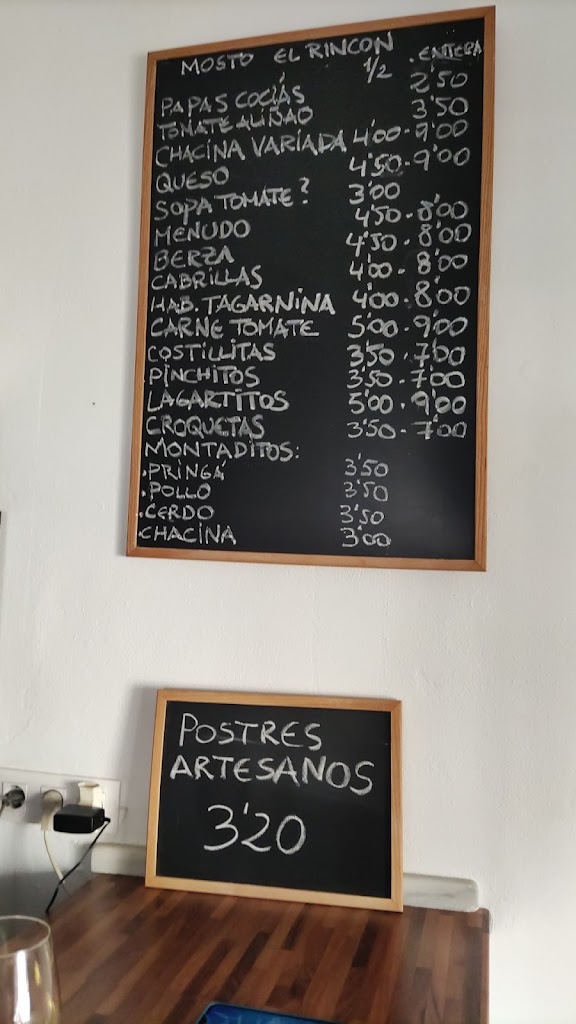 MOSTO EL RINCON
1/2 . ENTERA
PAPAS COCIÁS 2'50
TOMATE ALIÑAO 3'50
CHACINA VARIADA 4'00 - 9'00
QUESO 4'50 - 9'00
SOPA TOMATE? 3'00
MENUDO 4'50 - 8'00
BERZA 4'50 - 8'00
CABRILLAS 4'00 - 8'00
HAB. TAGARNINA 4'00 - 8'00
CARNE TOMATE 5'00 - 9'00
COSTILLITAS 3'50 - 7'00
.PINCHITOS 3'50 - 7'00
LAGARTITOS 5'00 - 9'00
CROQUETAS 3'50 - 7'00
MONTADITOS:
.PRINGÁ 3'50
.POLLO 3'50
.CERDO 3'50
.CHACINA 3'00
POSTRES
ARTESANOS
3'20